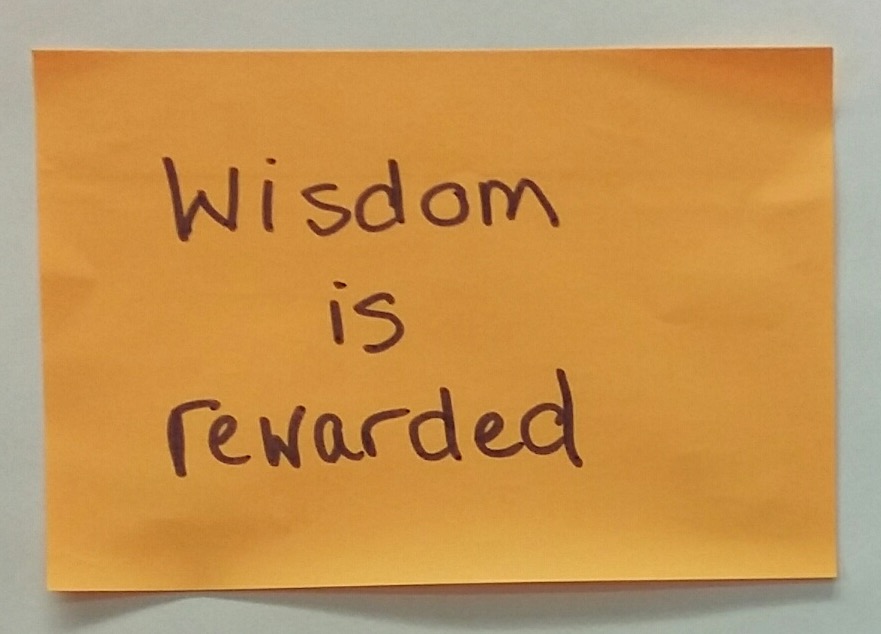 Wisdom
is
rewarded